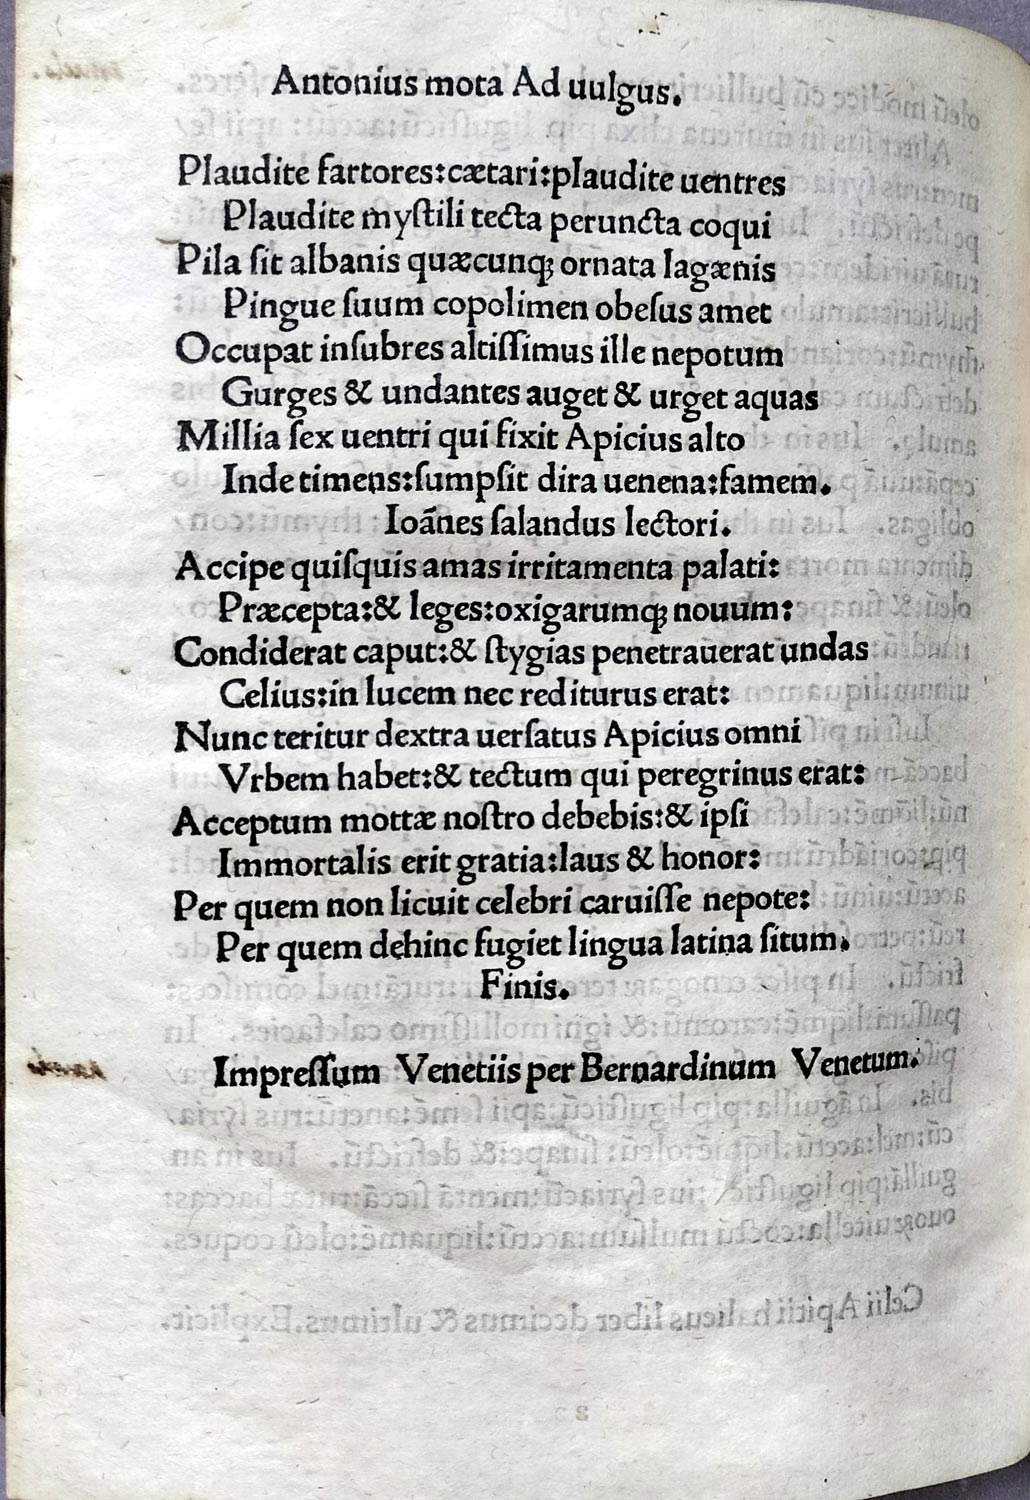 Antonius mota Ad uulgus.
Plaudite fartores:cætari:plaudite uentres
Plaudite myſtili tecta peruncta coqui
Pila ſit albanis quæcunqꝫ ornata lagænis
Pingue ſuum copolimen obeſus amet
Occupat inſubres altiſſimus ille nepotum
Gurges & undantes auget & urget aquas
Millia ſex uentri qui fixit Apicius alto
Inde timens:ſumpſit dira uenena:famem.
Ioānes ſalandus lectori.
Accipe quiſquis amas irritamenta palati:
Præcepta:& leges:oxigarumqꝫ nouum:
Condiderat caput:& ſtygias penetrauerat undas
Celius:in lucem nec rediturus erat:
Nunc teritur dextra uerſatus Apicius omni
Vrbem habet:& tectum qui peregrinus erat:
Acceptum mottæ noſtro debebis:& ipſi
Immortalis erit gratia:laus & honor:
Per quem non licuit celebri caruiſſe nepote:
Per quem dehinc fugiet lingua latina ſitum.
Finis.
Impreſſum Venetiis per Bernardinum Venetum.